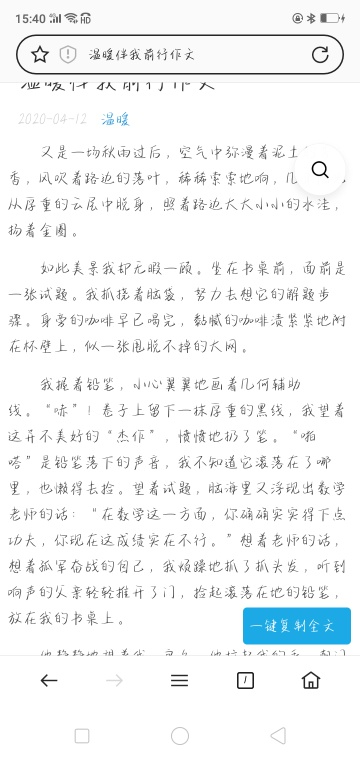 15:40
温暖伴我前行作文
温暖伴我前行作文
2020-04-12 温暖
又是一场秋雨过后，空气中弥漫着泥土
香，风吹着路边的落叶，稀稀索索地响，几
从厚重的云层中脱身，照着路边大大小小的水洼，
掬着金圈。
如此美景我却无暇一顾。坐在书桌前，面前是
一张试题。我抓挠着脑袋，努力去想它的解题步
骤。身旁的咖啡早已喝完，黏腻的咖啡渍紧紧地附
在杯壁上，似一张甩脱不掉的大网。
我握着铅笔，小心翼翼地画着几何辅助
线。“哧”！卷子上留下一抹厚重的黑线，我望着
这并不美好的“杰作”，愤愤地扔了笔。“啪
嗒”是铅笔落下的声音，我不知道它滚落在了哪
里，也懒得去捡。望着试题，脑海里又浮现出数学
老师的话：“在数学这一方面，你确确实实得下点
功夫，你现在这成绩实在不行。”想着老师的话，
想着孤军奋战的自己，我烦躁地抓了抓头发，听到
响声的父亲轻轻推开了门，捡起滚落在地的铅笔，
放在我的书桌上。
一键复制全文